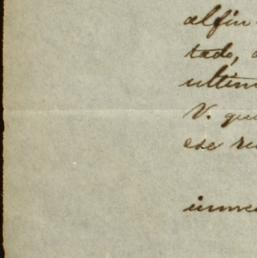 alfin
tado,
ultim
V. que
ese re
inme